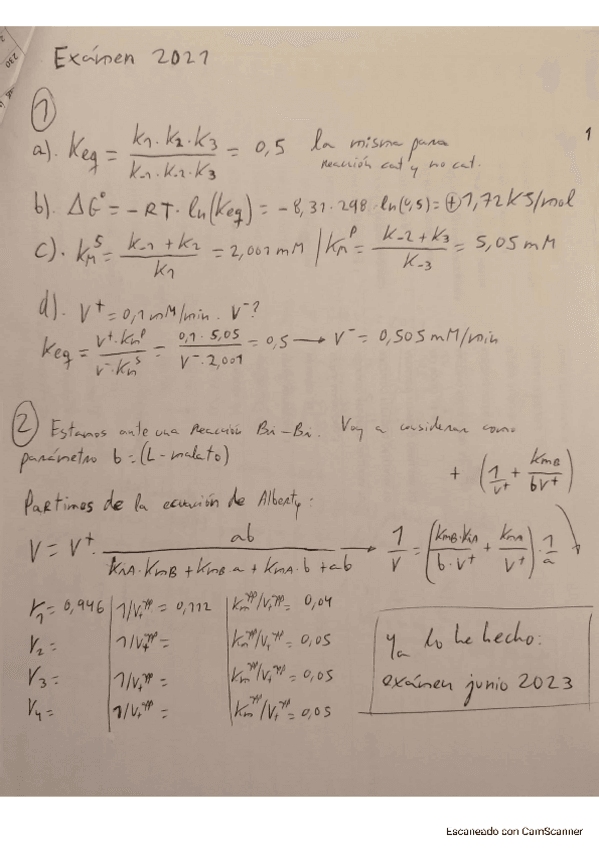 Exámen 2021
1
1
a). Keq = K1·K2·K3 / K-1·K-2·K-3 = 0,5 la misma para
reacción cat y no cat.
b). ΔG° = -RT·ln(Keq) = -8,31·298·ln(0,5) = +1,72 KJ/mol
c). KmS = K-1 + K2 / K1 = 2,001 mM / KmP = K-2 + K3 / K-3 = 5,05 mM
d). V+ = 0,1 mM/min. V-?
Keq = V+·KmP / V-·KmS = 0,1·5,05 / V-·2,001 = 0,5 → V- = 0,505 mM/min
2 Estamos ante una reacción Bi-Bi. Voy a considerar como
parámetro b = (L-malato)
+ (1/V+ + KmB/bV+)
Partimos de la ecuación de Alberty:
V = V+· ab / KiA·KmB + KmB a + KmA·b + ab → 1/V = (KmB·KiA / b·V+ + KmA / V+)·1/a
r1 = 0,946 1/V+app = 0,112 Kmapp/V+app = 0,04
V2 = 1/V+app = Kmapp/V+app = 0,05
V3 = 1/V+app = Kmapp/V+app = 0,05
V4 = 1/V+app = Kmapp/V+app = 0,05
Ya lo he hecho:
exámen junio 2023
Escaneado con CamScanner